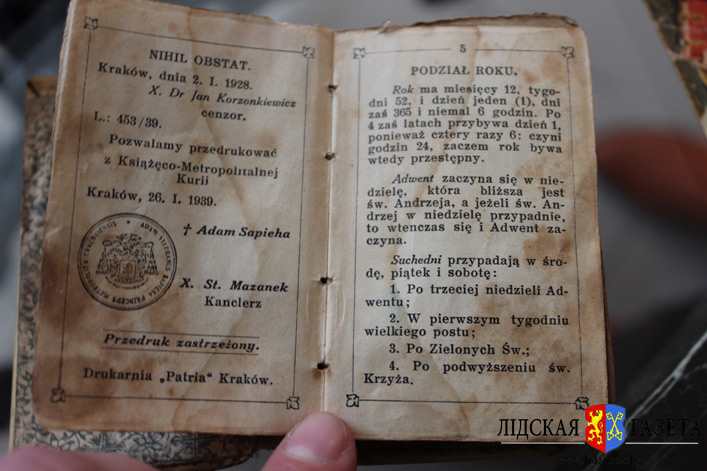 NIHIL OBSTAT.
Kraków, dnia 2. I. 1928.
X. Dr Jan Korzonkiewicz
cenzor.
L.: 453/39.
Pozwalamy przedrukować
z Książęco-Metropolitalnej
Kurii
Kraków, 26. I. 1939.
† Adam Sapieha
X. St. Mazanek
Kanclerz
Przedruk zastrzeżony.
Drukarnia „Patria" Kraków.
5
PODZIAŁ ROKU.
Rok ma miesięcy 12, tygo-
dni 52. i dzień jeden (1), dni
zaś 365 i niemal 6 godzin. Po
4 zaś latach przybywa dzień 1,
ponieważ cztery razy 6: czyni
godzin 24, zaczem rok bywa
wtedy przestępny.
Adwent zaczyna się w nie-
dzielę, która bliższa jest
św. Andrzeja, a jeżeli św. An-
drzej w niedzielę przypadnie,
to wtenczas się i Adwent za-
czyna.
Suchedni przypadają w śro-
dę, piątek i sobotę:
1. Po trzeciej niedzieli Ad-
wentu;
2. W pierwszym tygodniu
wielkiego postu;
3. Po Zielonych Św.;
4. Po podwyższeniu św.
Krzyża.
ЛІДСКАЯ ГАЗЕТА